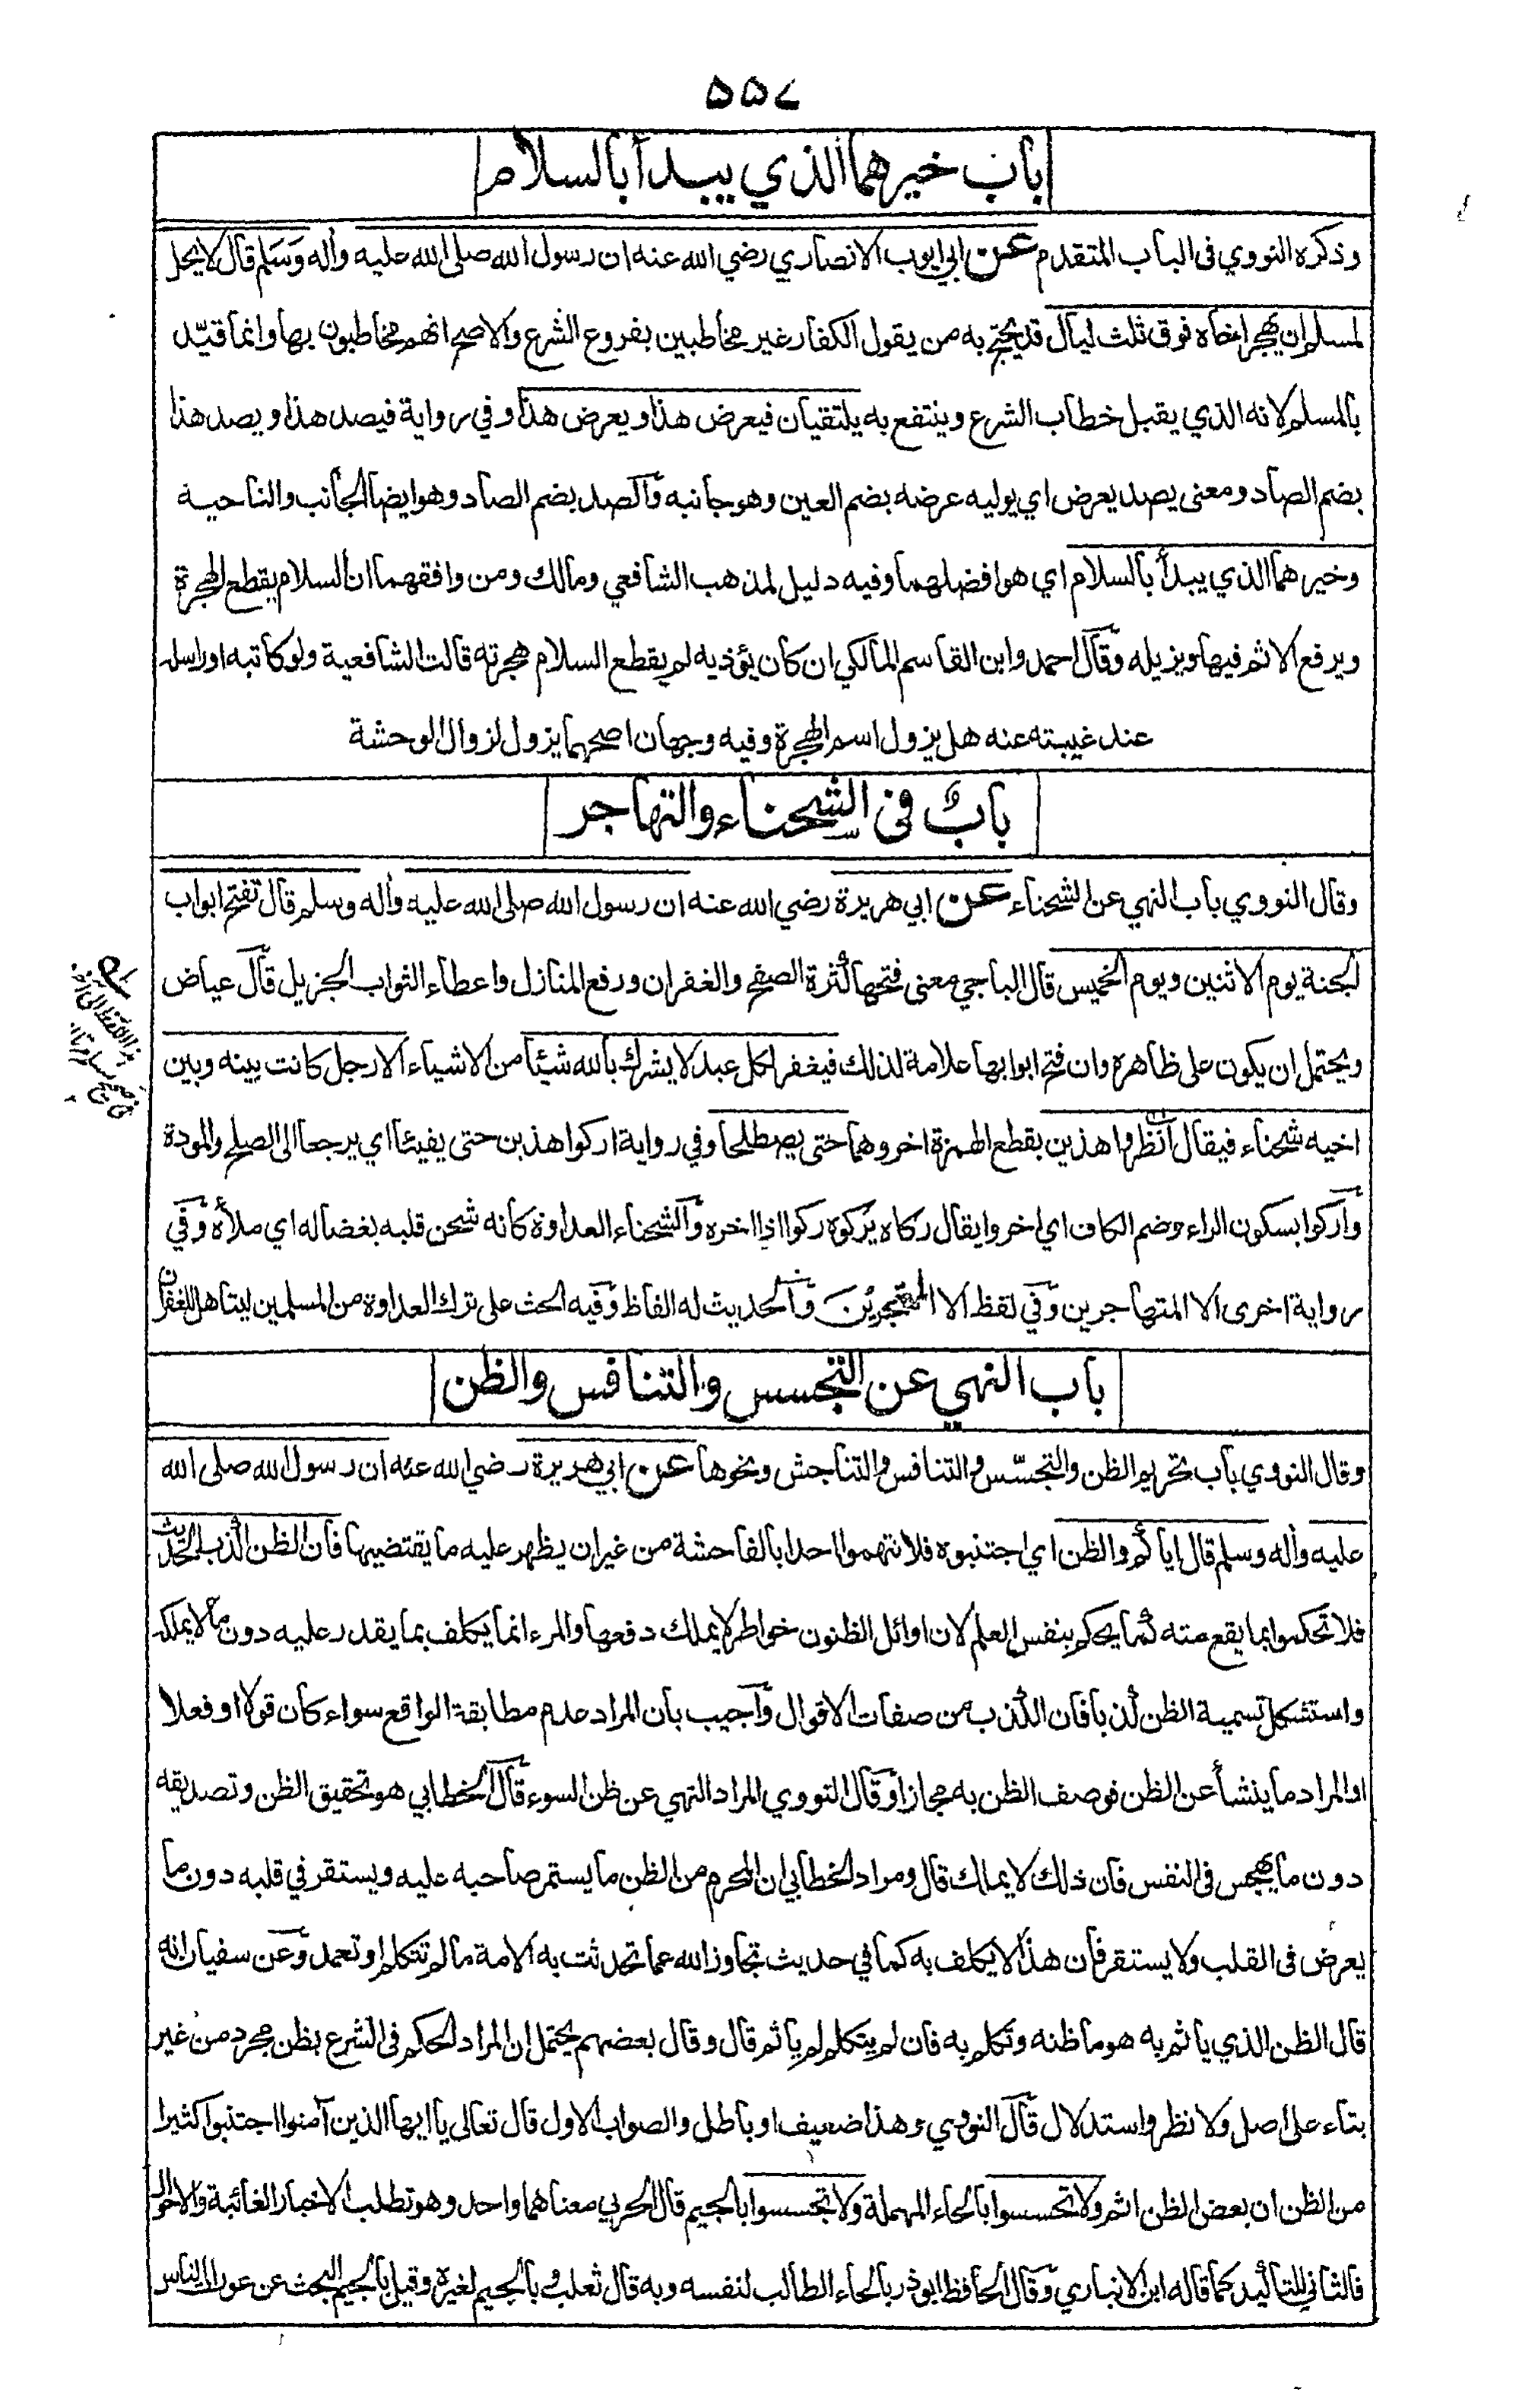 ٥٥٧
باب خيرهما الذي يبدأ بالسلام
وذكره النووي فى الباب المتقدم عن ابي ايوب الانصاري رضي الله عنه ان رسول الله صلى الله عليه وأله وَسَلم قال لا يحل
لمسلم ان يهجر اخاه فوق ثلث ليال قد يحتج به من يقول الكفار غير مخاطبين بفروع الشرع والاصح انهم مخاطبون بها وانما قيّد
بالمسلم لانه الذي يقبل خطاب الشرع وينتفع به يلتقيان فيعرض هذا ويعرض هذا وفي رواية فيصد هذا ويصد هذا
بضم الصاد ومعنى يصد يعرض اي يوليه عرضه بضم العين وهو جانبه والصد بضم الصاد وهو ايضا الجانب والناحية
وخيرهما الذي يبدأ بالسلام اي هو افضلهما وفيه دليل لمذهب الشافعي ومالك ومن وافقهما ان السلام يقطع الهجرة
ويرفع الاثم فيها ويزيله وقال احمد وابن القاسم المالكي ان كان يؤذيه لم يقطع السلام هجرته قالت الشافعية ولو كاتبه او راسله
عند غيبته عنه هل يزول اسم الهجرة وفيه وجهان اصحهما يزول لزوال الوحشة
بابٌ فى الشحناء والتهاجر
وقال النووي باب النهي عن الشحناء عن ابي هريرة رضي الله عنه ان رسول الله صلى الله عليه وأله وسلم قال تفتح ابواب
الجنة يوم الاثنين ويوم الخميس قال الباجي معنى فتحها كثرة الصفح والغفران ورفع المنازل واعطاء الثواب الجزيل قال عياض
ويحتمل ان يكون على ظاهره وان فتح ابوابها علامة لذلك فيغفر لكل عبد لا يشرك بالله شيئا من الاشياء الا رجل كانت بينه وبين
اخيه شحناء فيقال انظروا هذين بقطع الهمزة اخروهما حتى يصطلحا وفي رواية اركوا هذين حتى يفيئا اي يرجعا الى الصلح والمودة
واركوا بسكون الراء وضم الكاف اي اخروا يقال ركاه يركوه ركوا اذا اخره والشحناء العداوة كانه شحن قلبه بغضا له اي ملأه وفي
رواية اخرى الا المتهاجرين وفي لفظ الا المهتجرين والحديث له الفاظ وفيه الحث على ترك العداوة من المسلمين ليتاهل للغفران
باب النهي عن التجسس والتنافس والظن
وقال النووي باب تحريم الظن والتجسّس والتنافس والتناجش ونحوها عن ابي هريرة رضي الله عنه ان رسول الله صلى الله
عليه وأله وسلم قال اياكم والظن اي اجتنبوه فلا تتهموا احدا بالفاحشة من غير ان يظهر عليه ما يقتضيها فان الظن اكذب الحديث
فلا تحكموا بما يقع منه كما يحكم بنفس العلم لان اوائل الظنون خواطر لا يملك دفعها والمرء انما يكلف بما يقدر عليه دون ما لا يملكه
واستشكل تسمية الظن كذبا فان الكذب من صفات الاقوال واجيب بان المراد عدم مطابقة الواقع سواء كان قولا او فعلا
او المراد ما ينشأ عن الظن فوصف الظن به مجازا وقال النووي المراد النهي عن ظن السوء قال الخطابي هو تحقيق الظن وتصديقه
دون ما يهجس فى النفس فان ذلك لا يملك قال ومراد الخطابي ان المحرم من الظن ما يستمر صاحبه عليه ويستقر في قلبه دون ما
يعرض فى القلب ولا يستقر فان هذا لا يكلف به كما في حديث تجاوز الله عما تحدثت به الامة ما لم تتكلم او تعمد وعن سفيان انه
قال الظن الذي ياثم به هو ما ظنه وتكلم به فان لم يتكلم لم ياثم قال وقال بعضهم يحتمل ان المراد الحكم فى الشرع بظن مجرد من غير
بناء على اصل ولا نظر واستدلال قال النووي وهذا ضعيف او باطل والصواب الاول قال تعالى يا ايها الذين آمنوا اجتنبوا كثيرا
من الظن ان بعض الظن اثم ولا تحسسوا بالحاء المهملة ولا تجسسوا بالجيم قال الحربي معناهما واحد وهو تطلب الاخبار الغائبة والاحوال
فالثاني للتأكيد كما قاله ابن الانباري وقال الحافظ ابو ذر بالحاء الطالب لنفسه وبه قال ثعلب وبالجيم لغيره وقيل بالجيم البحث عن عورات الناس